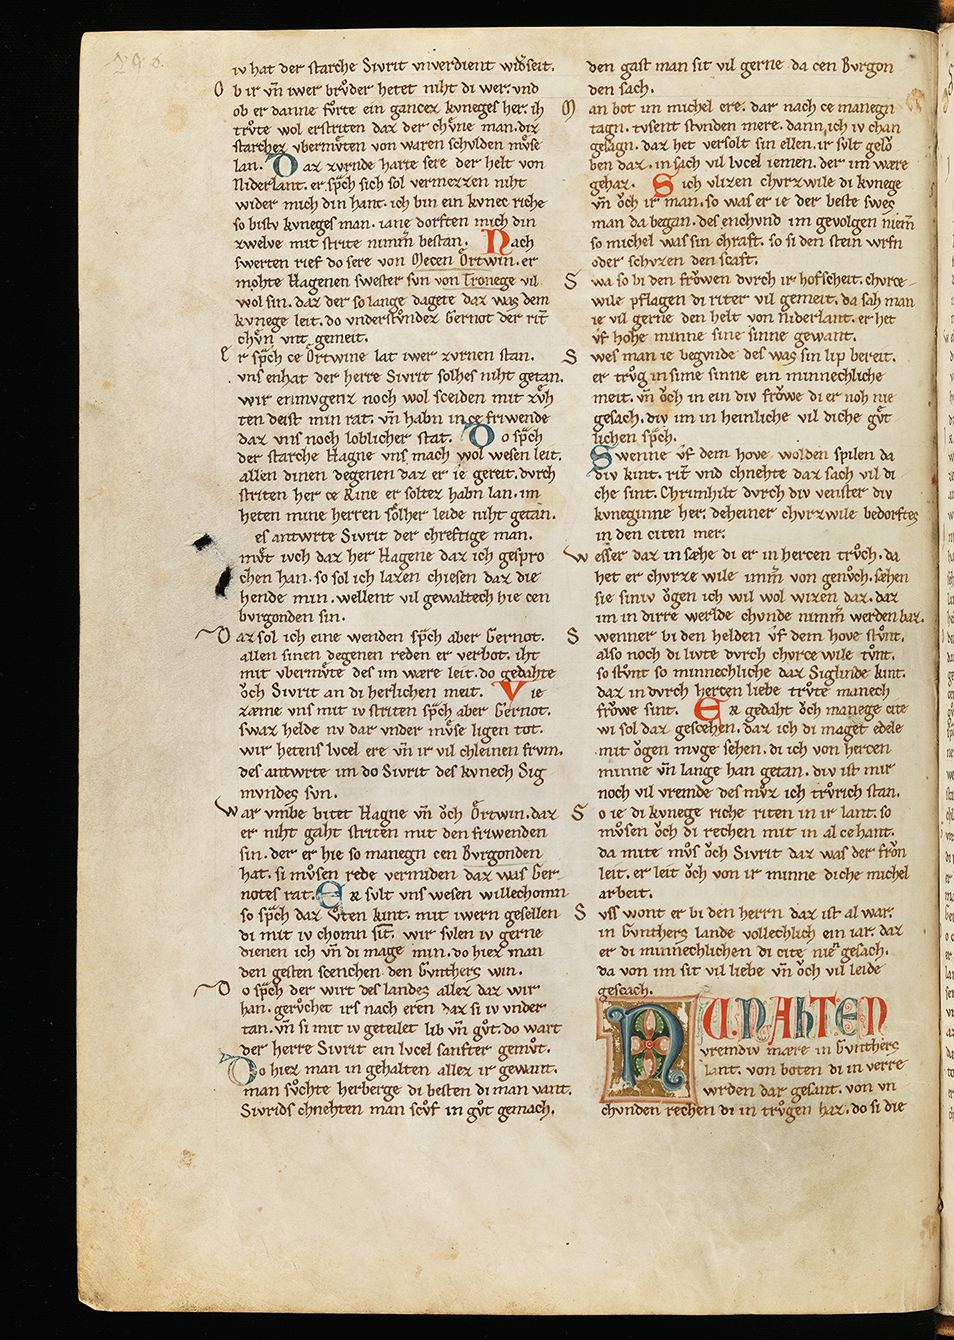 iv hat der starche Sivrit vnverdient wid̄seit.
O b ir vn̄ iwer brv̊der hetet niht di wer. vnd
ob er danne fv̊rte ein gancez kvneges her. ih
trv̊te wol erstriten daz der chv̊ne man. diz
starchez vbermv̊ten von waren schvlden mv̊se
lan. Daz zvrnde harte sere der helt von
Niderlant. er sp̄ch sich sol vermezzen niht
wider mich din hant. ich bin ein kvnec riche
so bistv kvneges man. iane dorften mich din
zwelve mit strite nimm̄ bestan. Nach
swerten rief do sere von Mecen Ortwin. er
mohte Hagenen swester svn von Tronege vil
wol sin. daz der so lange dagete daz was dem
kvnege leit. do vnderstv̊ndez Gernot der rit̄
chv̊n vnt gemeit.
E r sp̄ch ce Ortwine lat iwer zvrnen stan.
vns enhat der herre Sivrit solhes niht getan.
wir enmvgenz noch wol sceiden mit zv̊h
ten deist min rat. vn̄ habn in ce friwende
daz vns noch loblicher stat. Do sp̄ch
der starche Hagne vns mach wol wesen leit.
allen dinen degenen daz er ie gereit. dvrch
striten her ce Rine er soltez habn lan. im
heten mine herren sölher leide niht getan.
es antwrte Sivrit der chreftige man.
mv̊t ivch daz her Hagene daz ich gespro
chen han. so sol ich lazen chiesen daz die
hende min. wellent vil gewaltech hie cen
bvrgonden sin.
D az sol ich eine wenden sp̄ch aber Gernot.
allen sinen degenen reden er verbot. iht
mit vbermv̊te des im wære leit. do gedahte
ǒch Sivrit an di herlichen meit. Wie
zæme vns mit iv striten sp̄ch aber Gernot.
swaz helde nv dar vnder mv̊se ligen tot.
wir hetens lvcel ere vn̄ ir vil chleinen frvm.
des antwrte im do Sivrit des kvnech Sig
mvndes svn.
W ar vmbe bitet Hagne vn̄ ǒch Ortwin. daz
er niht gaht striten mit den friwenden
sin. der er hie so manegn cen Bvrgonden
hat. si mv̊sen rede vermiden daz was Ger
notes rat. Ez svlt vns wesen willechomn
so sp̄ch daz Vten kint. mit iwern gesellen
di mit iv chomn sit̄. wir svlen iv gerne
dienen ich vn̄ di mage min. do hiez man
den gesten scenchen den Gvnthers win.
D o sp̄ch der wirt des landes allez daz wir
han. gerv̊chet irs nach eren daz si iv vnder
tan. vn̄ si mit iv geteilet lib vn̄ gv̊t. do wart
der herre Sivrit ein lvcel sanfter gemv̊t.
Do hiez man in gehalten allez ir gewant.
man sv̊chte herberge di besten di man vant.
Sivrids chnehten man scv̊f in gv̊t gemach.
den gast man sit vil gerne da cen Bvrgon
den sach.
M an bot im michel ere. dar nach ce manegn
tagn. tvsent stvnden mere. dann ich iv chan
gesagn. daz het versolt sin ellen. ir svlt gelǒ
ben daz. in sach vil lvcel iemen. der im wære
gehaz. Sich vlizen chvrzwile di kvnege
vn̄ ǒch ir man. so was er ie der beste swes
man da began. des enchvnd im gevolgen niem̄
so michel was sin chraft. so si den stein wrfn
oder schvzen den scaft.
S wa so bi den frǒwen dvrch ir hofscheit. chvrce
wile pflagen di riter vil gemeit. da sah man
ie vil gerne den helt von Niderlant. er het
v̊f hohe minne sine sinne gewant.
S wes man ie begvnde des was sin lip bereit.
er trv̊g in sime sinne ein minnechliche
meit. vn̄ ǒch in ein div frǒwe di er noh nie
gesach. div im in heinliche vil diche gv̊t
lichen sp̄ch.
Swenne v̊f dem hove wolden spilen da
div kint. rit̄ vnd chnehte daz sach vil di
che sint. Chrimhilt dvrch div venster div
kvneginne her. deheiner chvrzwile bedorftes
in den citen mer.
W esser daz in sæhe di er in hercen trv̊ch. da
het er chvrze wile imm̄ von genv̊ch. sæhen
sie siniv ǒgen ich wil wol wizen daz. daz
im in dirre werlde chvnde nimm̄ werden baz.
S wenner bi den helden v̊f dem hove stv̊nt.
also noch di livte dvrch chvrce wile tv̊nt.
so stv̊nt so minnechliche daz Siglinde kint.
daz in dvrch hercen liebe trv̊te manech
frǒwe sint. Ez gedaht ǒch manege cite
wi sol daz gescehen. daz ich di maget edele
mit ǒgen mvge sehen. di ich von hercen
minne vn̄ lange han getan. div ist mir
noch vil vremde des mv̊z ich trv̊rich stan.
S o ie di kvnege riche riten in ir lant. so
mv̊sen ǒch di rechen mit in al ce hant.
da mite mv̊s ǒch Sivrit daz was der frǒn
leit. er leit ǒch von ir minne diche michel
arbeit.
S vss wont er bi den herrn daz ist al war.
in Gvnthers lande vollechlich ein iar. daz
er di minnechlichen di cite nie gesach.
da von im sit vil liebe vn̄ ǒch vil leide
gescach.
NU. NAhTEN
vremdiv mære in Gvnthers
lant. von boten di in verre
wrden dar gesant. von vn
chvnden rechen di in trv̊gen haz. do si die